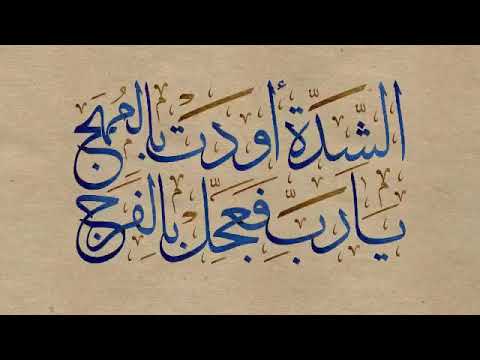 الشَّدَّةُ أَودَت بِالمُهَجِ
يَا رَبِّ فَعَجِّل بِالفَرَجِ